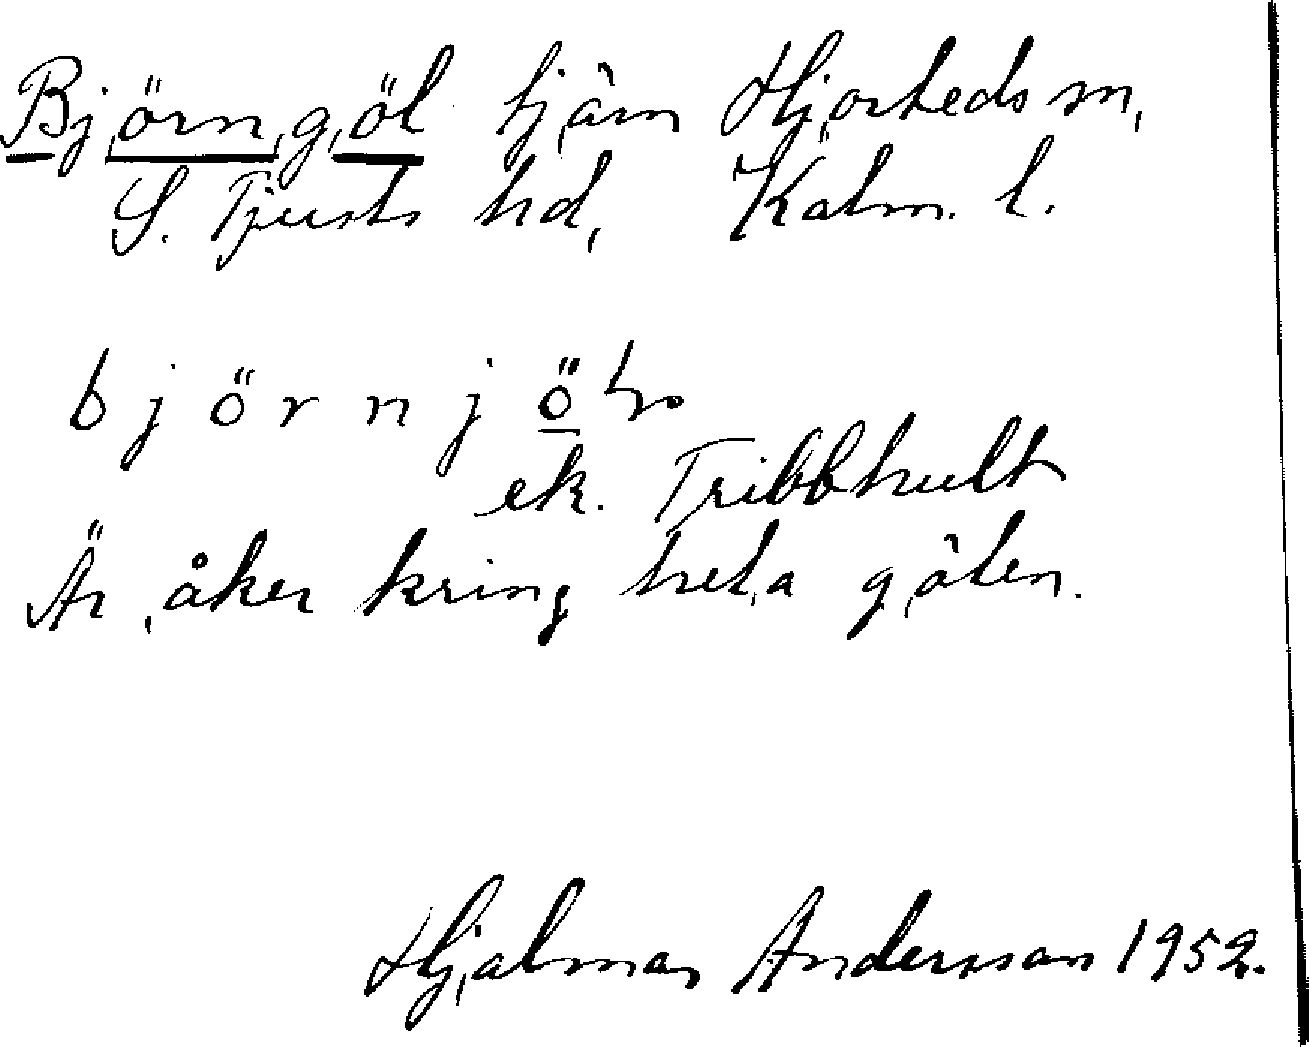 Björngöl tjärn Hjorteds sn,
S. Tjusts hd, Kalm. l.
björnjö
ek. Tribbhult
Är åker kring hela gölen.
Hjalmar Andersson 1952.